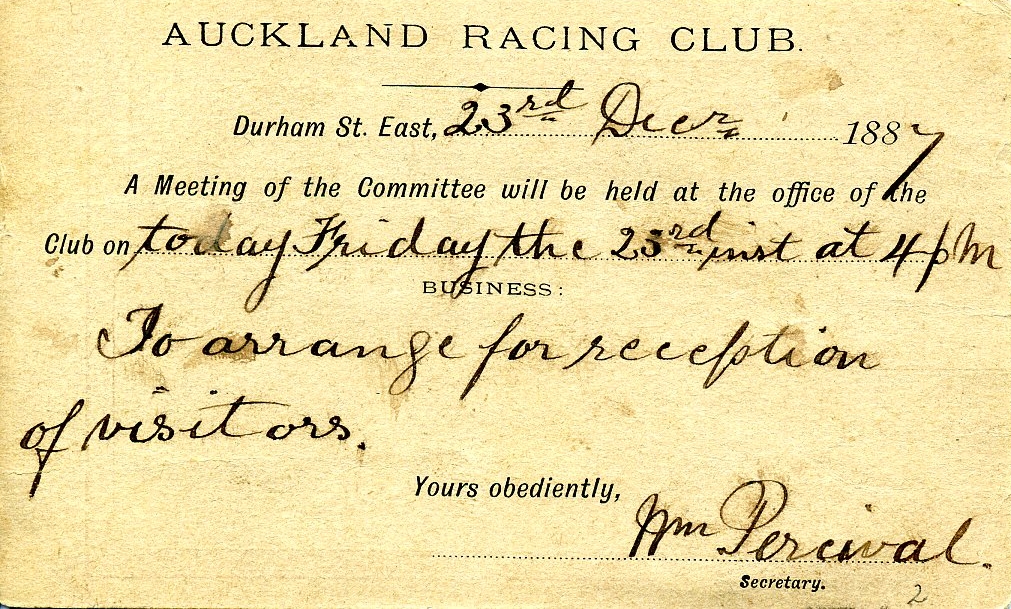 AUCKLAND RACING CLUB.
Durham St. East, 23rd Decr 1887
A Meeting of the Committee will be held at the office of the
Club on today Friday the 23rd inst at 4 pm
BUSINESS:
To arrange for reception
of visitors.
Yours obediently,
Wm Percival.
Secretary.
2